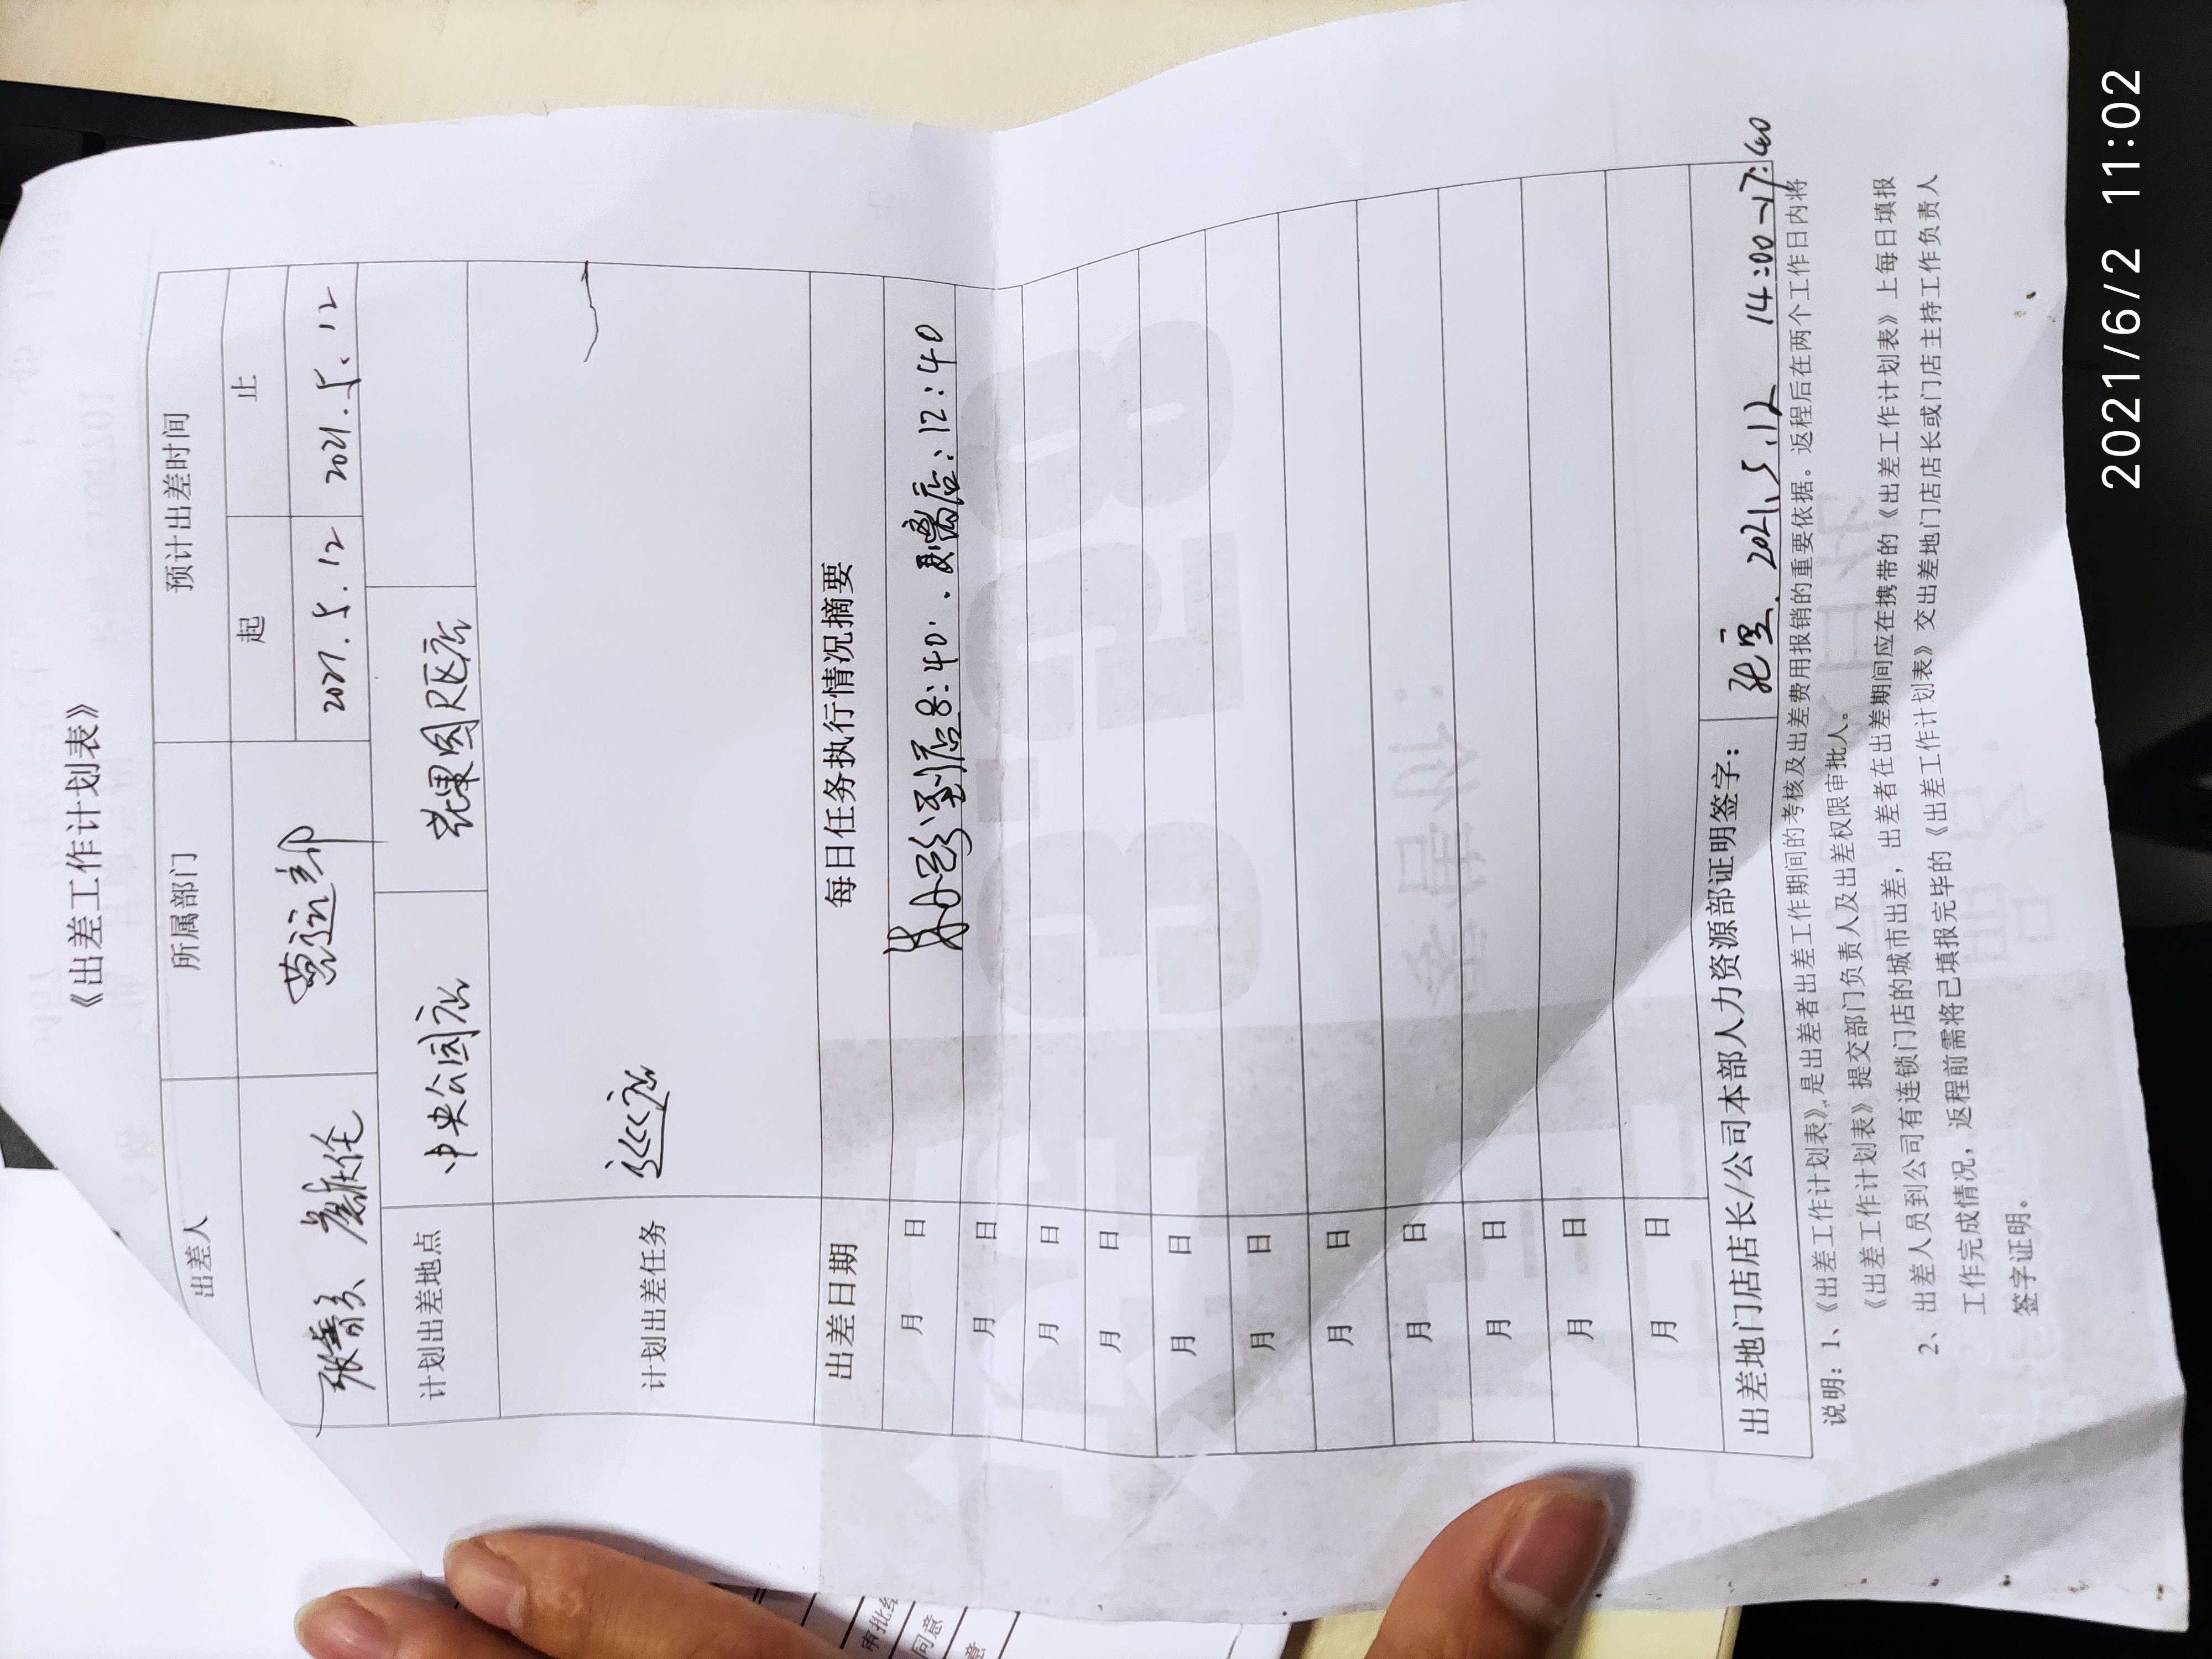 《出差工作计划表》
出差人 所属部门 预计出差时间
起 止
张 营远部 2021.5.12 2021.5.12
计划出差地点 中央公园店 R区店
计划出差任务 巡店
出差日期 每日任务执行情况摘要
月 日 到店8:40. 离店:12:40
月 日
月 日
月 日
月 日
月 日
月 日
月 日
月 日
月 日
月 日
出差地门店店长/公司本部人力资源部证明签字: 2021.5.12 14:00→17:40
说明:1、《出差工作计划表》是出差者出差工作期间的考核及出差费用报销的重要依据。返程后在两个工作日内将
《出差工作计划表》提交部门负责人及出差权限审批人。
2、出差人员到公司有连锁门店的城市出差,出差者在出差期间应在携带的《出差工作计划表》上每日填报
工作完成情况,返程前需将已填报完毕的《出差工作计划表》交出差地门店店长或门店主持工作负责人
签字证明。
同意
2021/6/2 11:02